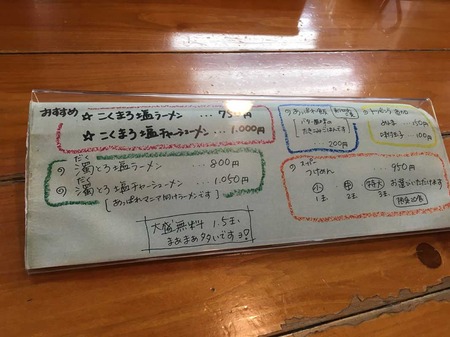 おすすめ
☆ こくまろ塩ラーメン ... 750円
☆ こくまろ塩チャーシューメン ... 1,000円
だく
濁とろ塩ラーメン ... 800円
だく
濁とろ塩チャーシューメン ... 1,050円
[あっぱれマニア向けラーメンです]
大盛無料 1.5玉
まあまあ多いですョ!?
200円
150円
味付玉子 100円
つけめん ... 950円
小 中 特大 お選びいただけます
1玉 2玉 3玉
限定10食